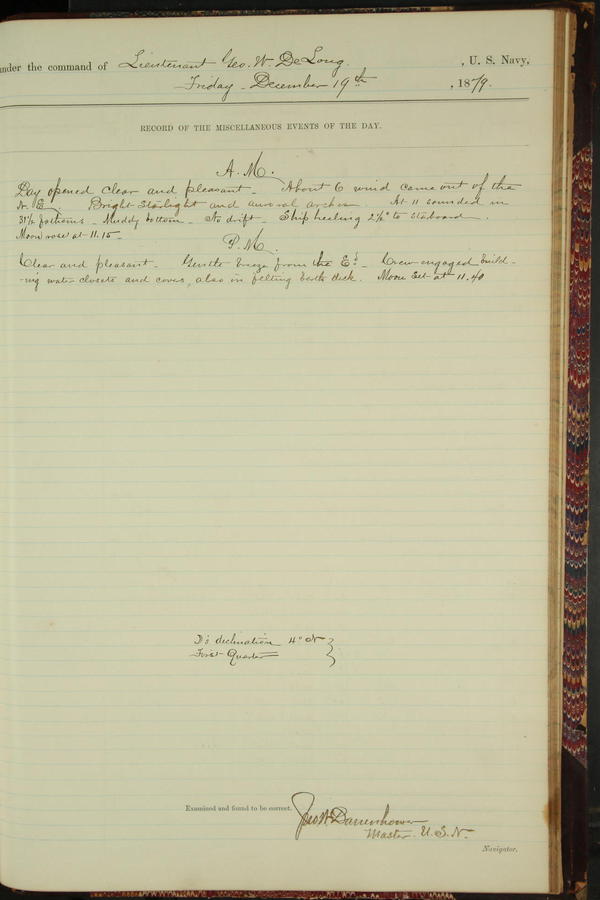 under the command of Lieutenant Geo. W. DeLong. , U. S. Navy,
Friday - December 19th , 1879.
RECORD OF THE MISCELLANEOUS EVENTS OF THE DAY.
A. M.
Day opened clear and pleasant - About 6 wind came out of the
N. E. Bright starlight and auroral arches. At 11 sounded in
31½ fathoms - Muddy bottom - No drift - Ship heeling 2½° to staboard.
Moon rose at 11.15 -
P. M.
Clear and pleasant - Gentle breeze from the Ed - Crew engaged build-
-ing water closets and covers, also in felting berth deck. Moon set at 11.40
declination 4° N }
First Quarter
Examined and found to be correct.
Jno W Danenhower
Master. U. S. N.
Navigator.